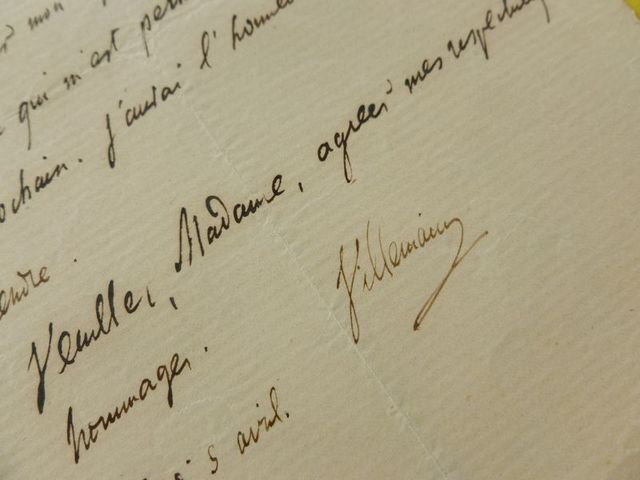 mon
qui m'est perm
ochain. J'aurai l'honneu
endre.
Veuillez, Madame, agréer mes respectueux
hommages.
Villemain
5 avril.